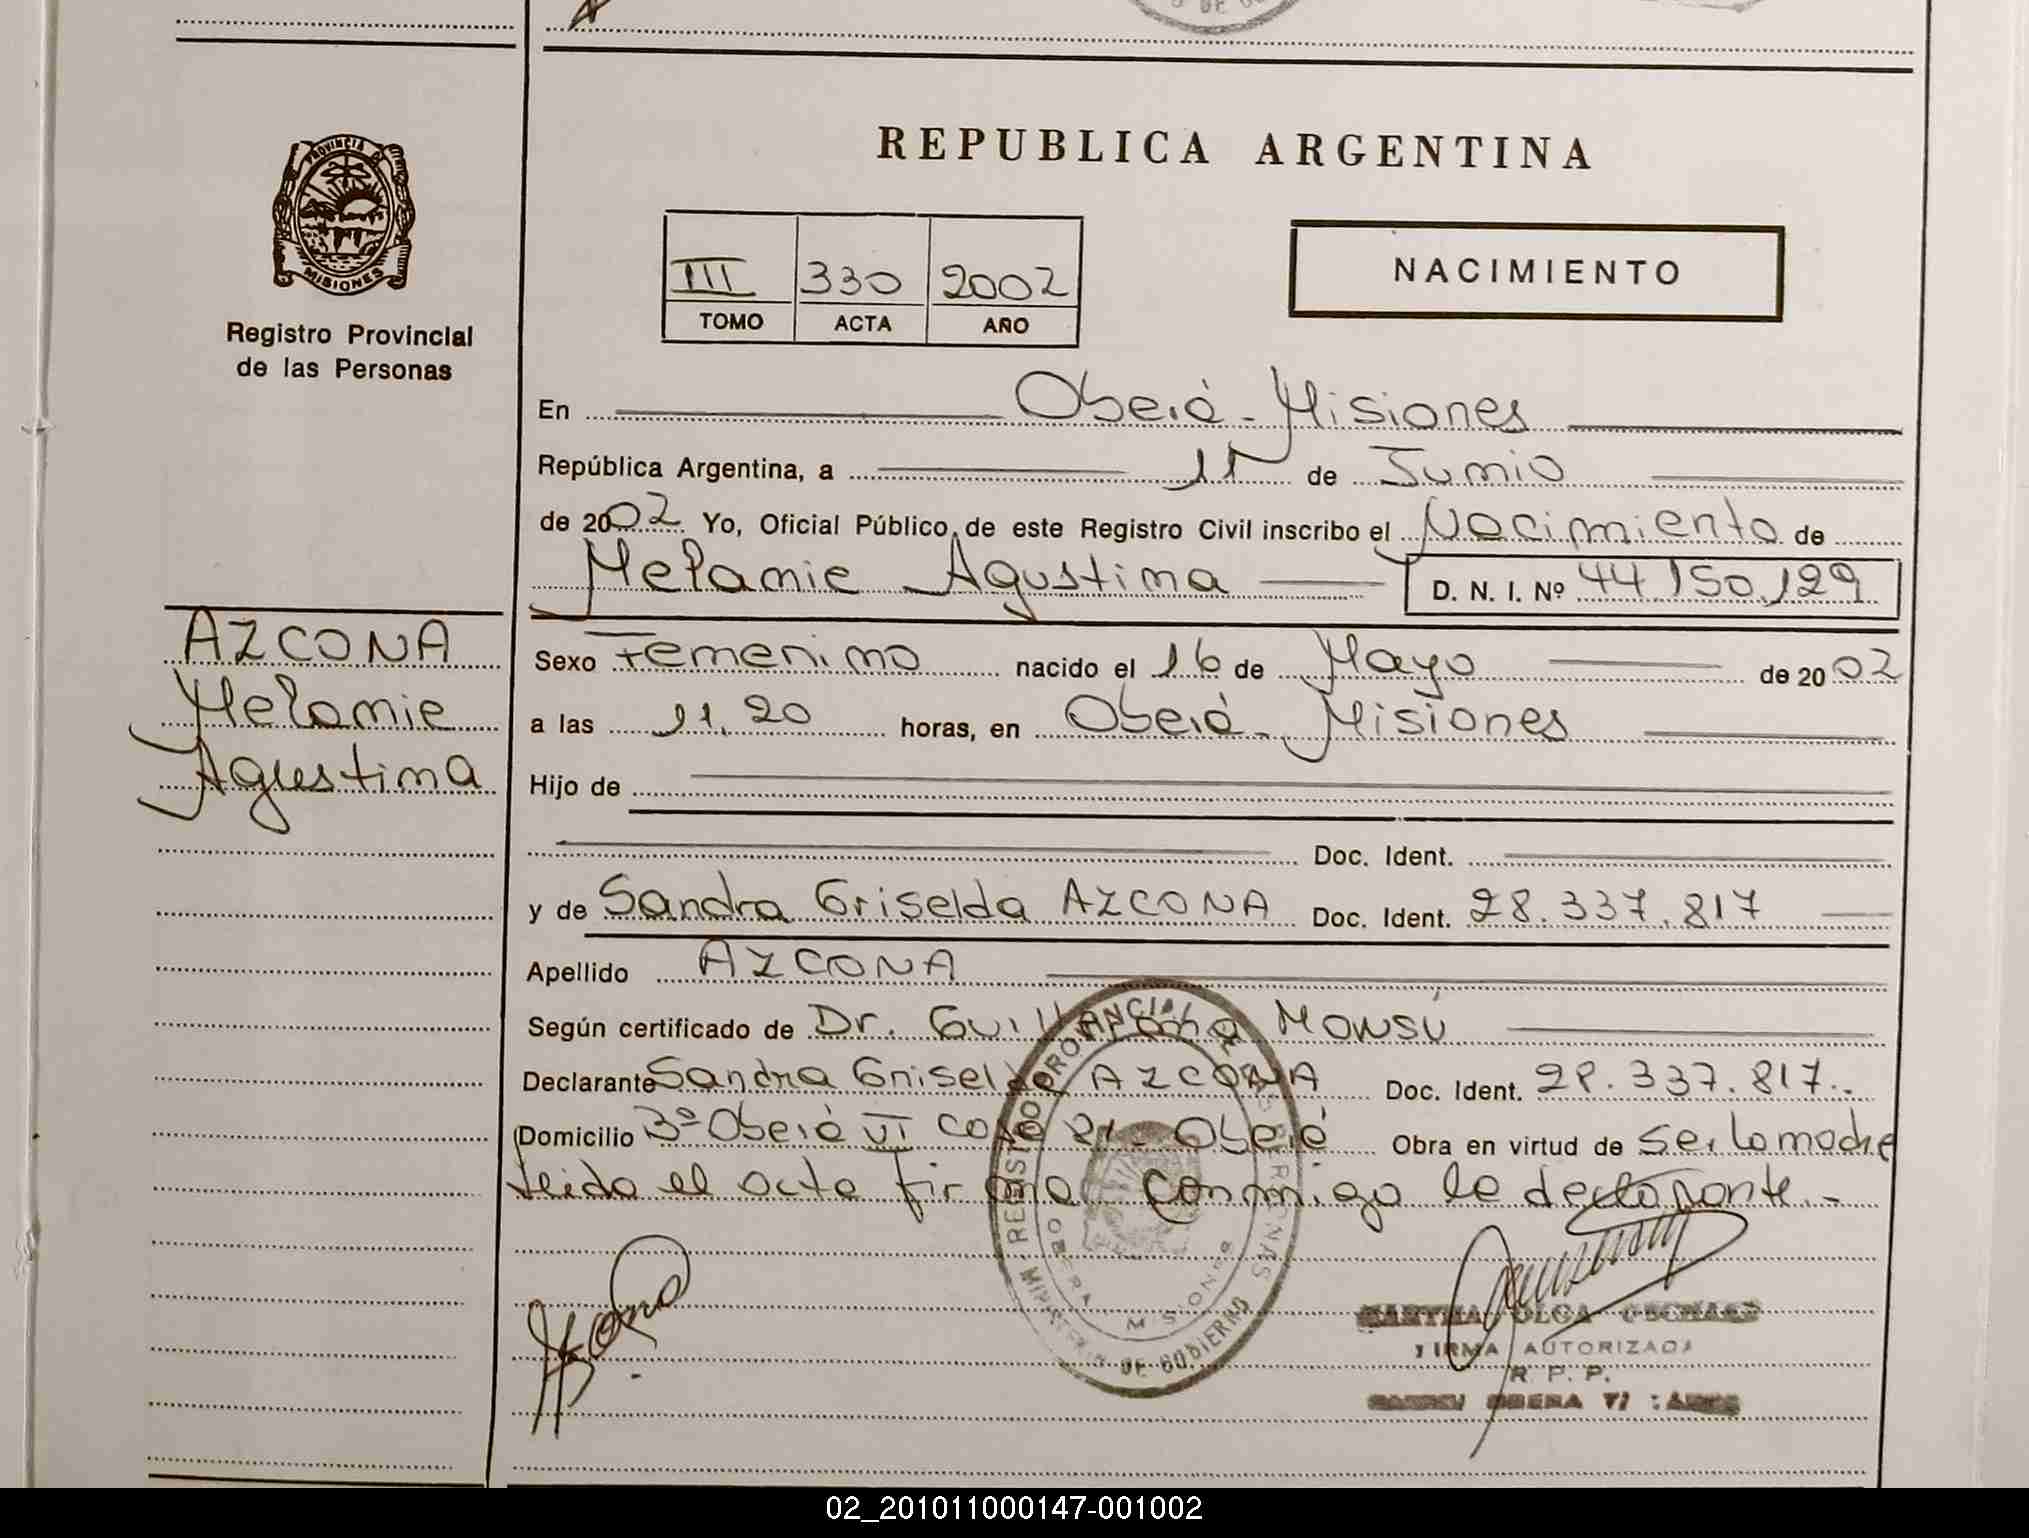 REPUBLICA ARGENTINA
PROVINCIA DE
MISIONES
Registro Provincial
de las Personas
III 330 2002
TOMO ACTA AÑO
NACIMIENTO
En Oberá - Misiones
República Argentina, a 11 de Junio
de 2002 Yo, Oficial Público de este Registro Civil inscribo el Nacimiento de
Melanie Agustina D. N. I. Nº 44.150.129
AZCONA
Melanie
Agustina
Sexo Femenino nacido el 16 de Mayo de 2002
a las 11.20 horas, en Oberá - Misiones
Hijo de
Doc. Ident.
y de Sandra Griselda AZCONA Doc. Ident. 28.337.817
Apellido AZCONA
Según certificado de Dr. Monsú
Declarante Sandra Griselda AZCONA Doc. Ident. 28.337.817.
Domicilio 3º Oberá VI Casa 21 - Oberá Obra en virtud de ser la madre
leida el acta firma conmigo la declarante.-
REGISTRO PROVINCIAL DE LAS PERSONAS
OBERA MISIONES
MINISTERIO DE GOBIERNO
MARTHA OLGA
FIRMA AUTORIZADA
R. P. P.
02_201011000147-001002